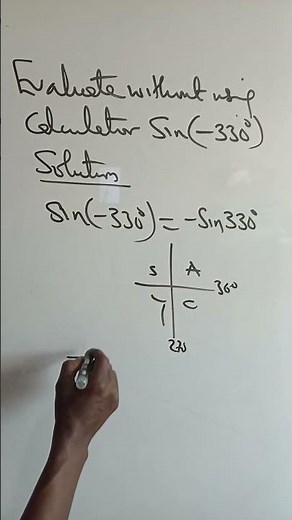 Evaluate without using
Calculator Sin(-330°)
Solution
Sin(-330°) = -Sin330°
S A
360
T C
270